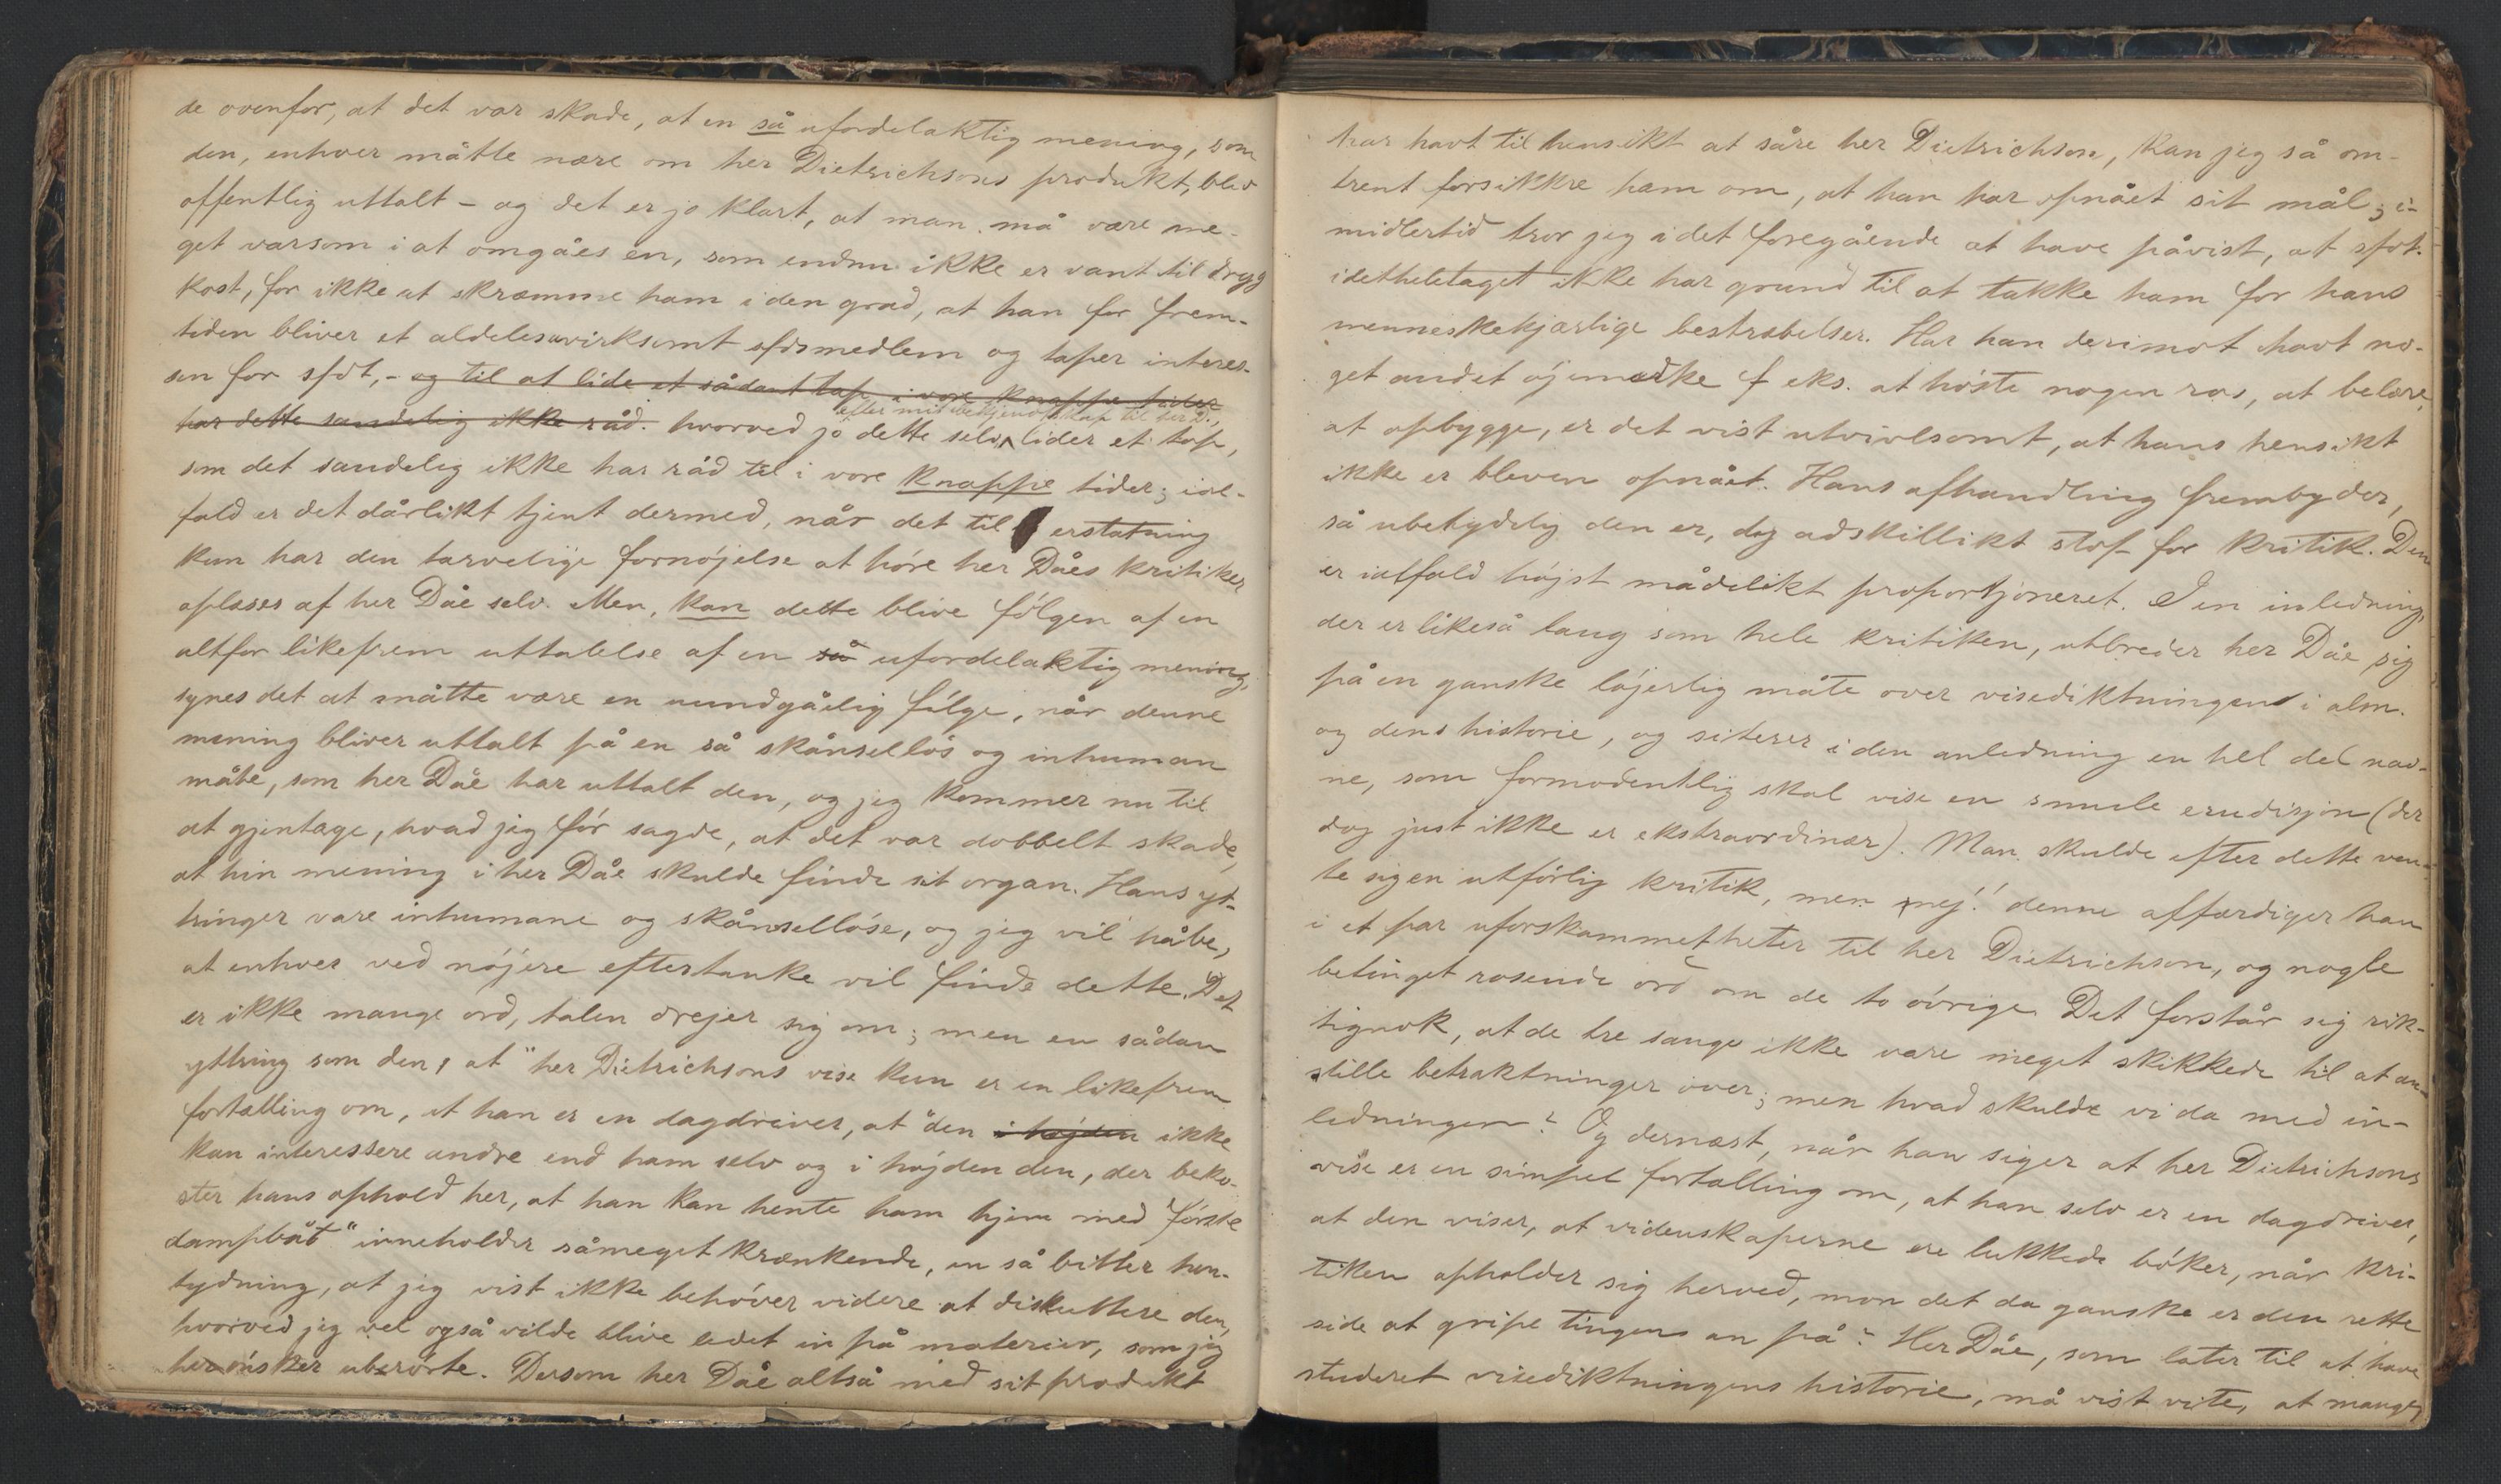 de ovenfor, at det var skade, at en så ufordelaktig mening, som
den, enhver måtte nære om her Dietrichsons produkt, blev
offentlig uttalt – og det er jo klart, at man må være me-
get varsom i at omgåes en, som endnu ikke er vant til drygg
kost, for ikke at skræmme ham i den grad, at han for frem-
tiden bliver et aldeles uvirksomt sfdsmedlem og taper interes-
sen for sfdt, - og til at lide et sådant tap i vore knappe tider
har dette sandelig ikke råd. hvorved jo dette selv, lider et tap,
efter mit bekjendtskap til her D.,
som det sandelig ikke har råd til i vore knappe tider; ial-
fald er det dårlikt tjent dermed, når det til erstatning
kun har den tarvelige fornøjelse at høre her Dåes kritiker
oplæses af her Dåe selv. Men, kan dette blive følgen af en
altfor likefrem uttalelse af en så ufordelaktig mening,
synes det at måtte være en uundgåelig følge, når denne
mening bliver uttalt på en så skånselløs og inhuman
måte, som her Dåe har uttalt den, og jeg kommer nu til
at gjentage, hvad jeg før sagde, at det var dobbelt skade,
at hin mening i her Dåe skulde finde sit organ. Hans yt-
tringer vare inhumane og skånselløse, og jeg vil håbe,
at enhver ved nøjere eftertanke vil finde dette. Det
er ikke mange ord, talen drejer sig om; men en sådan
yttring som den, at "her Dietrichsons vise kun er en likefrem
fortælling om, at han er en dagdriver, at den i højden ikke
kan interessere andre end ham selv og i højden den, der beko-
ster hans ophold her, at han kan hente ham hjem med første
dampbåt" inneholder såmeget krænkende, en så bitter hen-
tydning, at jeg vist ikke behøver videre at diskuttere den,
hvorved jeg vel også vilde blive ledet in på materier, som jeg
her ønsker uberørte. Dersom her Dåe altså med sit produkt
har havt til hensikt at såre her Dietrichson, kan jeg så om-
trent forsikkre ham om, at han har opnået sit mål; i-
midlertid tror jeg i det foregående at have påvist, at sfdt.
idetheletaget ikke har grund til at takke ham for hans
menneskekjærlige bestræbelser. Har han derimot havt no-
get andet øjemærke f eks. at høste nogen ros, at belære,
at opbygge, er det vist utvivlsomt, at hans hensikt
ikke er bleven opnået. Hans afhandling frembyder,
så ubetydelig den er, dog adskillikt stof for kritik. Den
er ialfald højst mådelikt proportjoneret. I en inledning,
der er likeså lang som hele kritiken, utbreder her Dåe sig
på en ganske løjerlig måte over visediktningen i alm.
og dens historie, og siterer i den anledning en hel del nav-
ne, som formodentlig skal vise en smule erudisjon (der
dog just ikke er ekstraordinær). Man skulde efter dette ven-
te sig en utførlig kritik, men nej! denne affærdiger han
i et par uforskammetheter til her Dietrichson, og nogle
betinget rosende ord om de to øvrige. Det forstår sig rik-
tignok, at de tre sange ikke vare meget skikkede til at an-
stille betraktninger over; men hvad skulde vi da med in-
ledningen? Og dernæst, når han siger at her Dietrichsons
vise er en simpel fortælling om, at han selv er en dagdriver,
at den viser, at videnskaperne ere lukkede bøker, når kri-
tiken opholder sig herved, mon det da ganske er den rette
side at gripe tingens an på? Her Dåe, som later til at have
studeret visediktningens historie, må vist vite, at mange